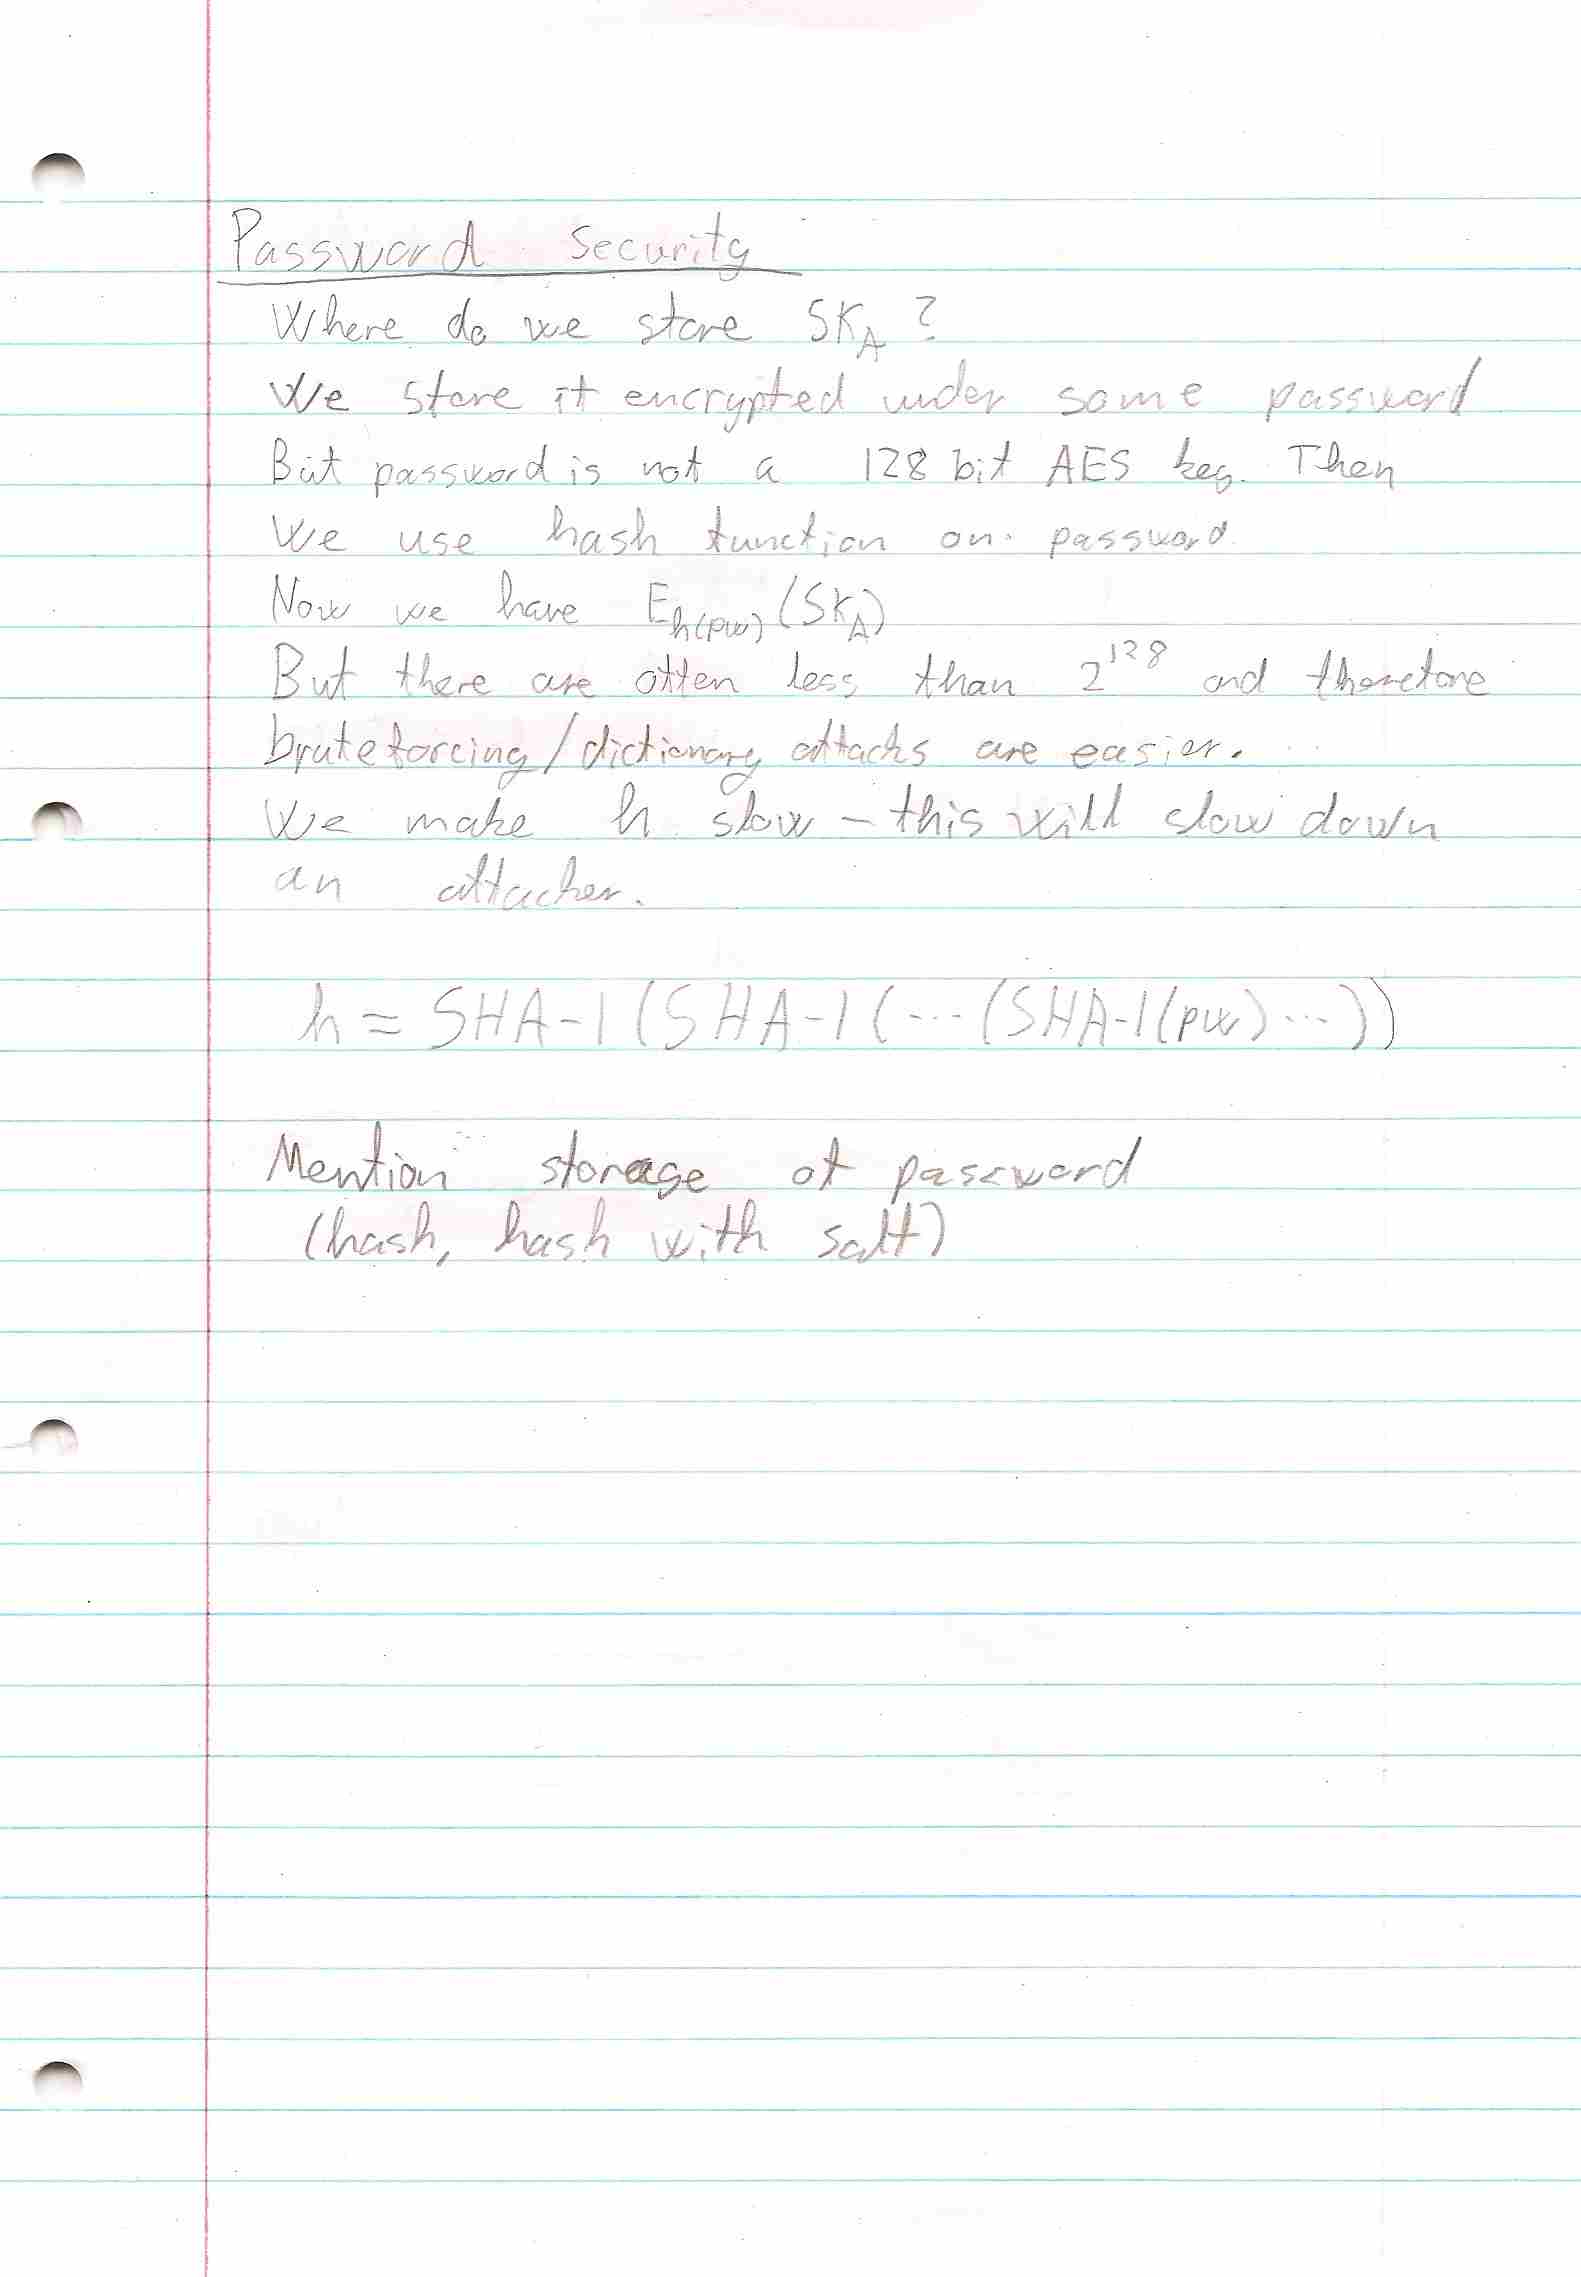 Password security
Where do we store SK_A?
We store it encrypted under some password
But password is not a 128 bit AES key. Then
We use hash function on password.
Now we have E_h(pw)(SK_A)
But there are often less than 2^128 and therefore
bruteforcing/dictionary attacks are easier.
We make h slow - this will slow down
an attacker.
h = SHA-1(SHA-1(...(SHA-1(pw)...))
Mention storage of password
(hash, hash with salt)